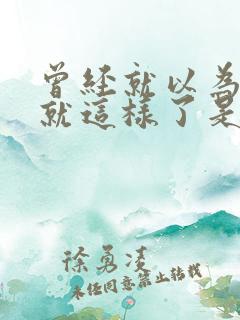 曾經就以為
就這樣了是
徐勇凌
未任同意禁止轉載